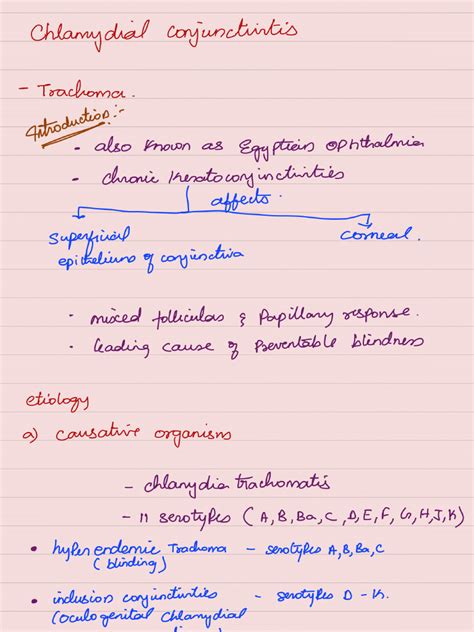 Chlamydial conjunctivitis
- Trachoma.
Introduction:-
- also known as Egyptian ophthalmia
- chronic keratoconjinctivities
affects.
superficial
epithelium of conjunctiva
corneal.
- mixed follicular & Papillary response.
- leading cause of Preventable blindness
etiology
a) causative organism
- chlamydia trachomatis
- 11 serotypes (A, B, Ba, C, D, E, F, G, H, J, K)
• hyper endemic Trachoma - serotypes A, B, Ba, C
(blinding)
• inclusion conjinctivities - serotypes D - K.
(oculogenital Chlamydial